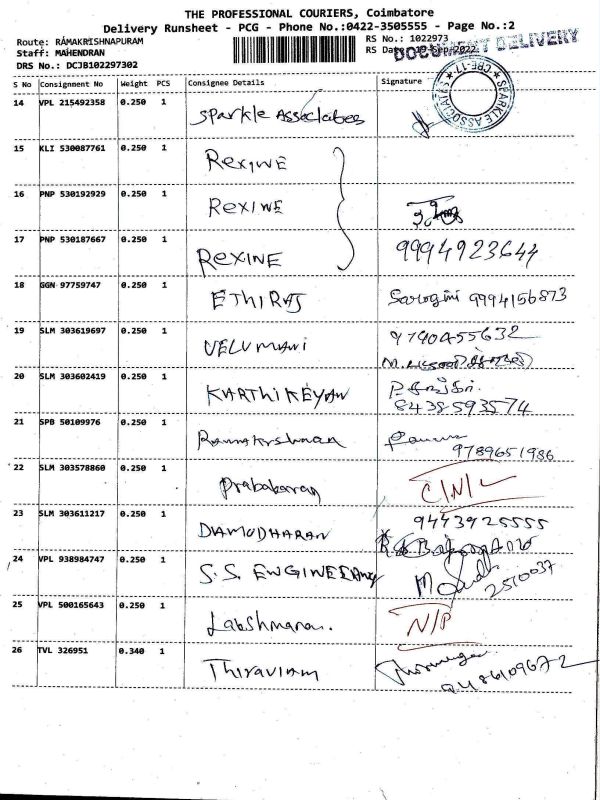 THE PROFESSIONAL COURIERS, Coimbatore
Delivery Runsheet - PCG - Phone No.:0422-3505555 - Page No.:2
Route: RAMAKRISHNAPURAM RS No.: 1022973
Staff: MAHENDRAN RS Date: 19 Sep 2022
DOCUMENT DELIVERY
DRS No.: DCJB102297302
SPARKLE ASSOCIATES CBE-17
S No Consignment No Weight PCS Consignee Details Signature
14 VPL 215492358 0.250 1 Sparkle Associates
15 KLI 530087761 0.250 1 REXINE
16 PNP 530192929 0.250 1 REXINE
17 PNP 530187667 0.250 1 REXINE 9994923644
18 GGN 97759747 0.250 1 ETHIRAJ Sarogini 9994156873
19 SLM 303619697 0.250 1 VELUMANI 9790455632
20 SLM 303602419 0.250 1 KARTHIKEYAN
8438593574
21 SPB 50109976 0.250 1 Ramakrishnan
9789651986
22 SLM 303578860 0.250 1 Prabakaran C/N/L
23 SLM 303611217 0.250 1 DAMODHARAN 9443925555
24 VPL 938984747 0.250 1 S.S. ENGINEERING
2510037
25 VPL 500165643 0.250 1 Lakshmanan. N/P
26 TVL 326951 0.340 1 Thiraviam
9486109672